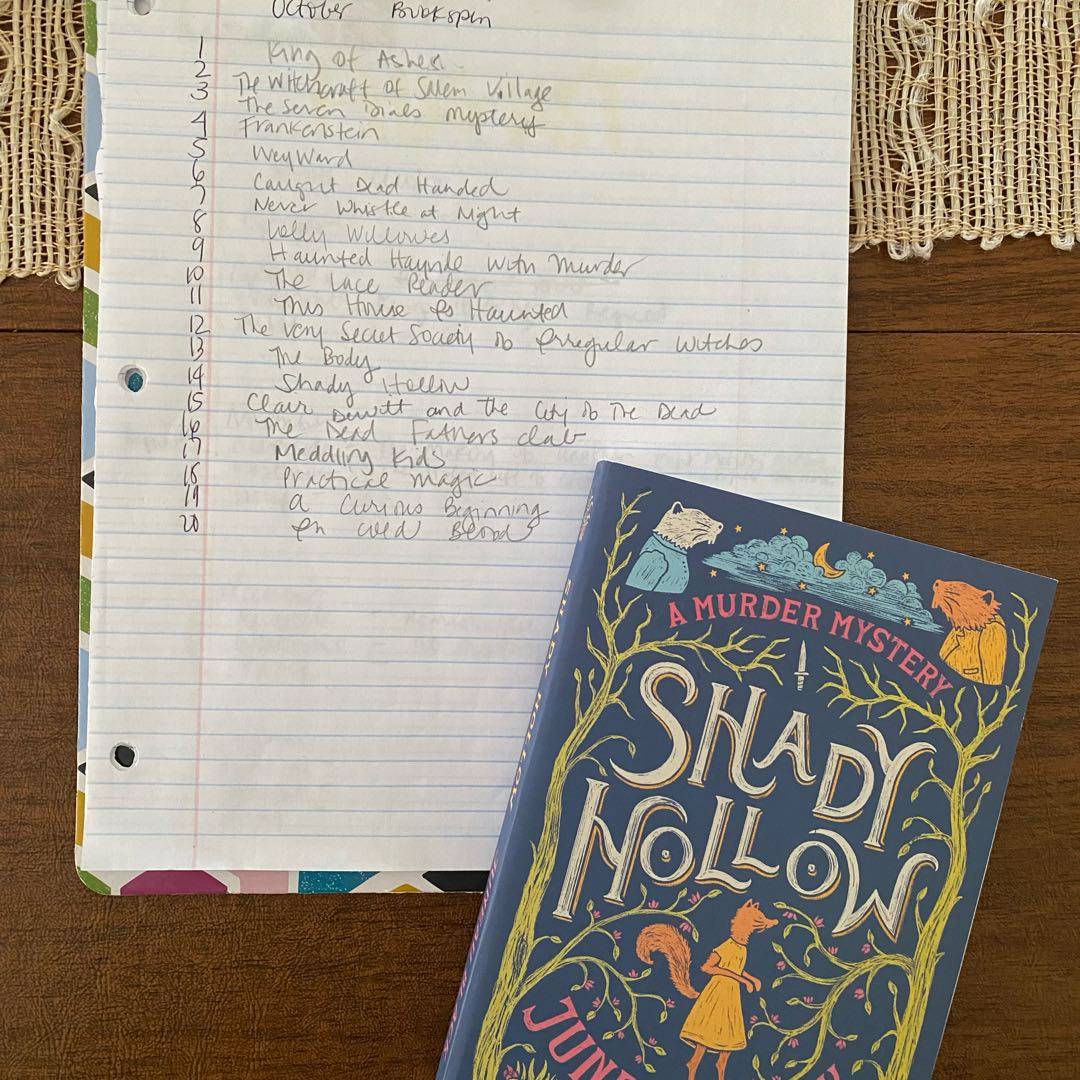 October Bookspin
1 King of Ashes
2 The Witchcraft of Salem Village
3 The Seven Dials Mystery
4 Frankenstein
5 WeyWard
6 Caught Dead Handed
7 Never Whistle at Night
8 Lolly Willowes
9 Haunted Hayride with Murder
10 The Lace Reader
11 This House Is Haunted
12 The Very Secret Society of Irregular Witches
13 The Body
14 Shady Hollow
15 Clair Dewitt and the City of The Dead
16 The Dead Fathers club
17 Meddling Kids
18 Practical Magic
19 A Curious Beginning
20 In Cold Blood
A MURDER MYSTERY
SHADY
HOLLOW